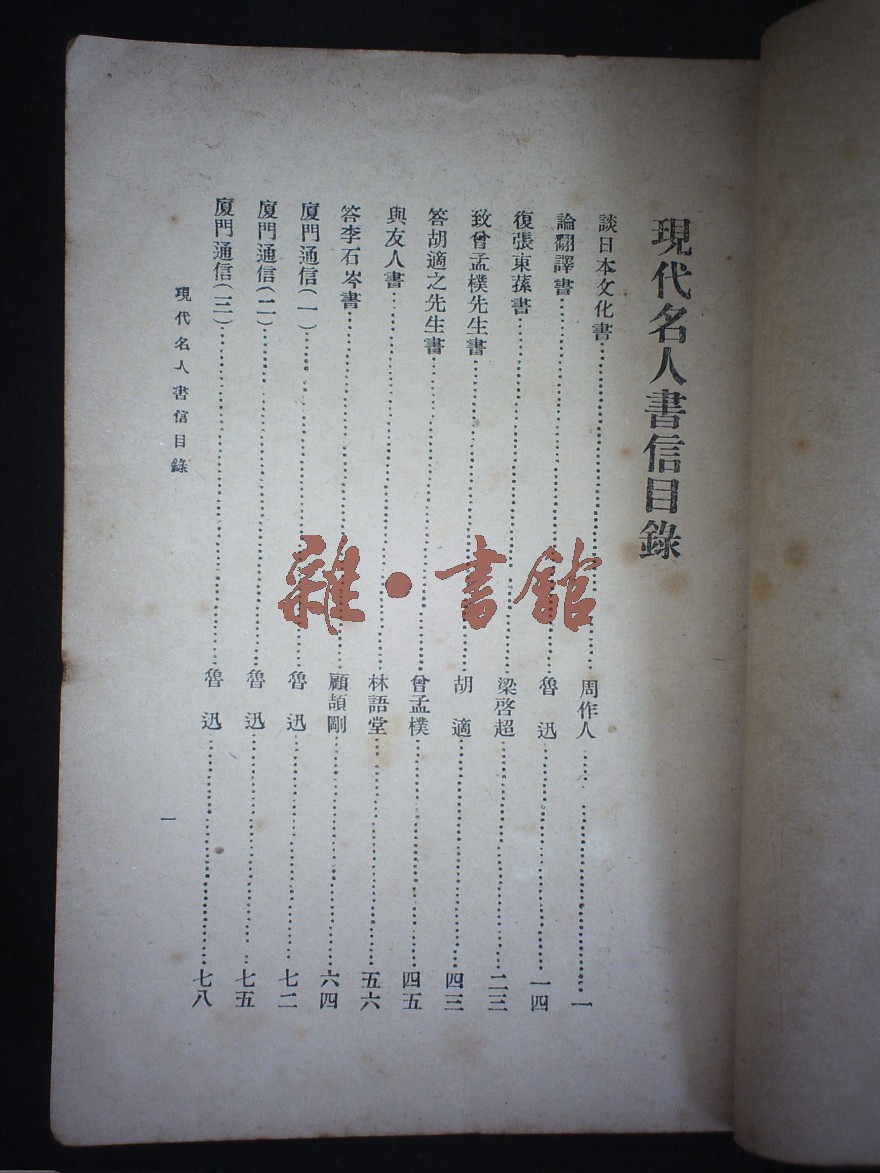 現代名人書信目錄
談日本文化書……周作人……一
論翻譯書……魯迅……一四
復張東蓀書……梁啓超……二三
致曾孟樸先生書……胡適……四三
答胡適之先生書……曾孟樸……四五
與友人書……林語堂……五六
答李石岑書……顧頡剛……六四
廈門通信(一)……魯迅……七二
廈門通信(二)……魯迅……七五
廈門通信(三)……魯迅……七八
現代名人書信目錄
一
雜·書館